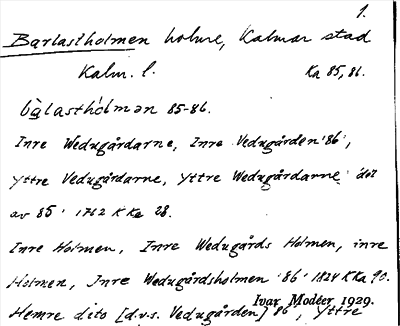 1.
Barlastholmen holme, Kalmar stad
Kalm. l. Ka 85, 86.
bàlasthólmən 85-86.
Inre Wedugårdarne, Inre Vedugården '86',
Yttre Vedugårdarne, Yttre Wedugårdarne 'del
av 85' 1762 K Ka 28.
Inre Holmen, Inre Wedugårds Holmen, inre
Holmen, Inre Wedugårdsholmen '86' 1824 K Ka 90.
Ivar Modéer 1929.
Hemre dito [d.v.s. Vedugården] '86', Yttre